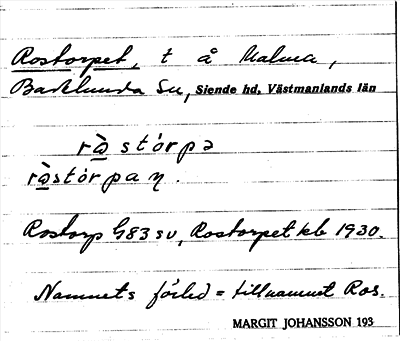 Rostorpet, t å Malma,
Barklunda Su, Siende hd, Västmanlands län
rå̀stórpə
rå̀stórpaɳ.
Rostorp G83 sv, Rostorpet kb 1930.
Namnets förled = tillnamnet Ros.
MARGIT JOHANSSON 193